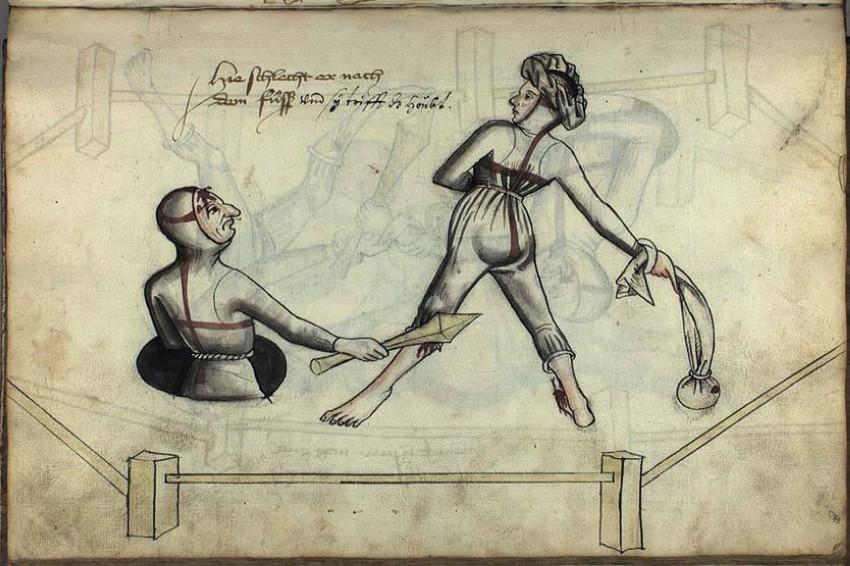 Hie schlecht er nach
dem füſſ und sy trifft dz höubt.